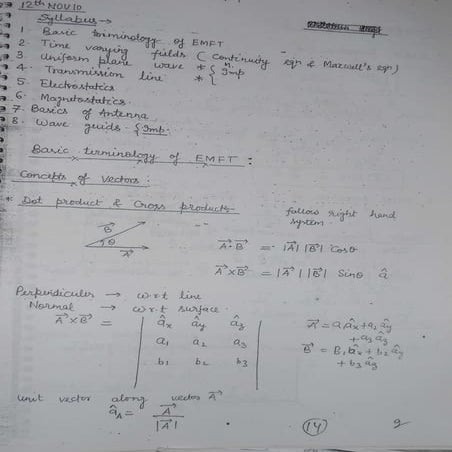 12th NOV 10
Syllabus →
1 Basic terminology of EMFT
2. Time varying fields (Continuity eqn & Maxwell's eqn)
3 Uniform plane wave * { Imp
4. Transmission line * {
5 Electrostatics
6. Magnetostatics
7. Basics of Antenna
8. Wave guids - { Imp.
Basic terminology of EMFT :
Concepts of vectors :
* Dot product & Cross products
follow right hand system
B θ A
A · B = |A| |B| Cosθ
A × B = |A| |B| Sinθ â
Perpendicular → w.r.t line
Normal → w.r.t surface.
A × B = | âx ây âz |
a1 a2 a3
b1 b2 b3
A = a1 âx + a2 ây + a3 âz
B = B1 âx + b2 ây + b3 âz
unit vector along vector A
âA = A / |A|
14